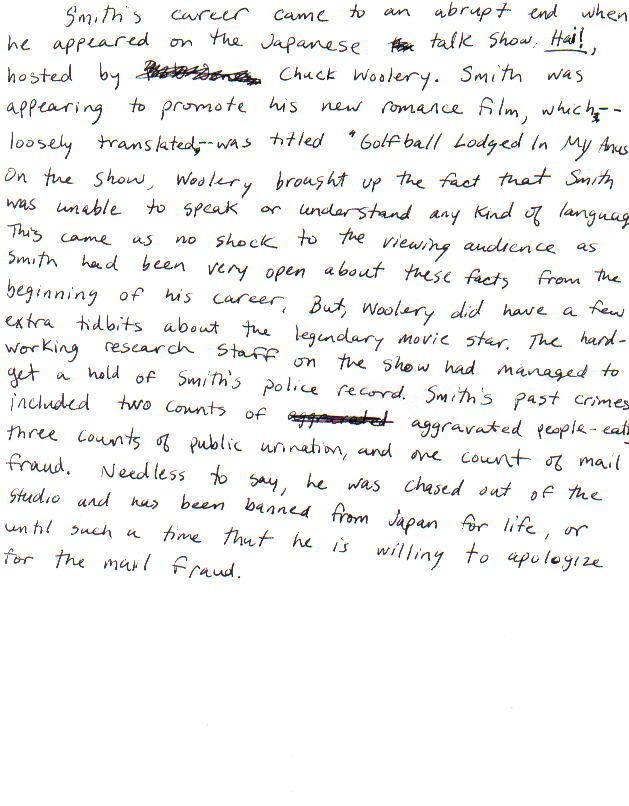 Smith's career came to an abrupt end when
he appeared on the Japanese talk show, Hai!,
hosted by Chuck Woolery. Smith was
appearing to promote his new romance film, which--
loosely translated--was titled "Golfball Lodged In My Anus
On the show, Woolery brought up the fact that Smith
was unable to speak or understand any kind of languag
This came as no shock to the viewing audience as
Smith had been very open about these facts from the
beginning of his career. But, Woolery did have a few
extra tidbits about the legendary movie star. The hard-
working research staff on the show had managed to
get a hold of Smith's police record. Smith's past crimes
included two counts of aggravated people-eati
three counts of public urination, and one count of mail
fraud. Needless to say, he was chased out of the
studio and has been banned from Japan for life, or
until such a time that he is willing to apologize
for the mail fraud.